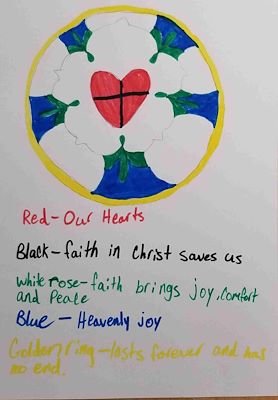 Red-Our Hearts
Black-faith in Christ saves us
White rose-faith brings joy, comfort
and Peace
Blue - Heavenly joy
Golden ring-lasts forever and has
no end.